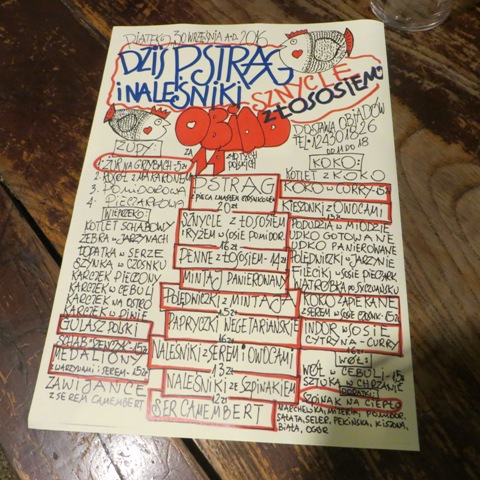 PIĄTEK, 30 WRZEŚNIA A.D. 2016
DZIŚ PSTRĄG
i NALEŚNIKI
SZNYCLE
z ŁOSOSIEM
OBIAD
ZA
14
ZŁOTYCH
POLSKICH
DOSTAWA OBIADÓW
TEL. 12 430 18 26
OD 11 DO 18
ZUPY:
1. ŻUR NA GRZYBACH - 5zł
2. ROSÓŁ z MAKARONEM
3. POMIDOROWA
4. PIECZARKOWA
WIEPRZKO:
KOTLET SCHABOWY
ŻEBRA w JARZYNACH
ŁOPATKA w SERZE
SZYNKA w CZOSNKU
KARCZEK PIECZONY
KARCZEK w CEBULI
KARCZEK NA OSTRO
KARCZEK w DINIE
GULASZ POLSKI
15zł
MEDALIONY
z WARZYWAMI i SEREM - 15zł
ZAWIJAŃCE
z SEREM CAMEMBERT
PSTRĄG
z PIECA z MASŁEM CZOSNKOWYM
20zł
SZNYCLE z ŁOSOSIEM
i RYŻEM w SOSIE POMIDOR.
16zł
PENNE z ŁOSOSIEM - 14zł
MINTAJ PANIEROWANY
POLĘDNICZKI z MINTAJA
PAPRYCZKI WEGETARIAŃSKIE
16zł
NALEŚNIKI z SEREM i OWOCAMI
13zł
NALEŚNIKI ze SZPINAKIEM
12zł
SER CAMEMBERT
KOKO:
KOTLET z KOKO
KOKO w CURRY - 15zł
KIESZONKI z OWOCAMI
15zł
PODUDZIA w MIODZIE
UDKO GOTOWANE
UDKO PANIEROWANE
POLĘDNICZKI w JARZYNIE
FILECIKI w SOSIE PIECZARK.
WĄTRÓBKA PO SYCZUAŃSKU
KOKO ZAPIEKANE
z SEREM w SOSIE CZOSN. - 15zł
INDOR w SOSIE
CYTRYNA - CURRY
16zł
WÓŁ:
WÓŁ w CEBULI - 15zł
SZTUKA w CHRZANIE
DODATKI:
SZPINAK NA CIEPŁO
MARCHEWKA, MIZERIA, POMIDOR,
SAŁATA, SELER, PEKIŃSKA, KISZONA,
BIAŁA, OGÓR